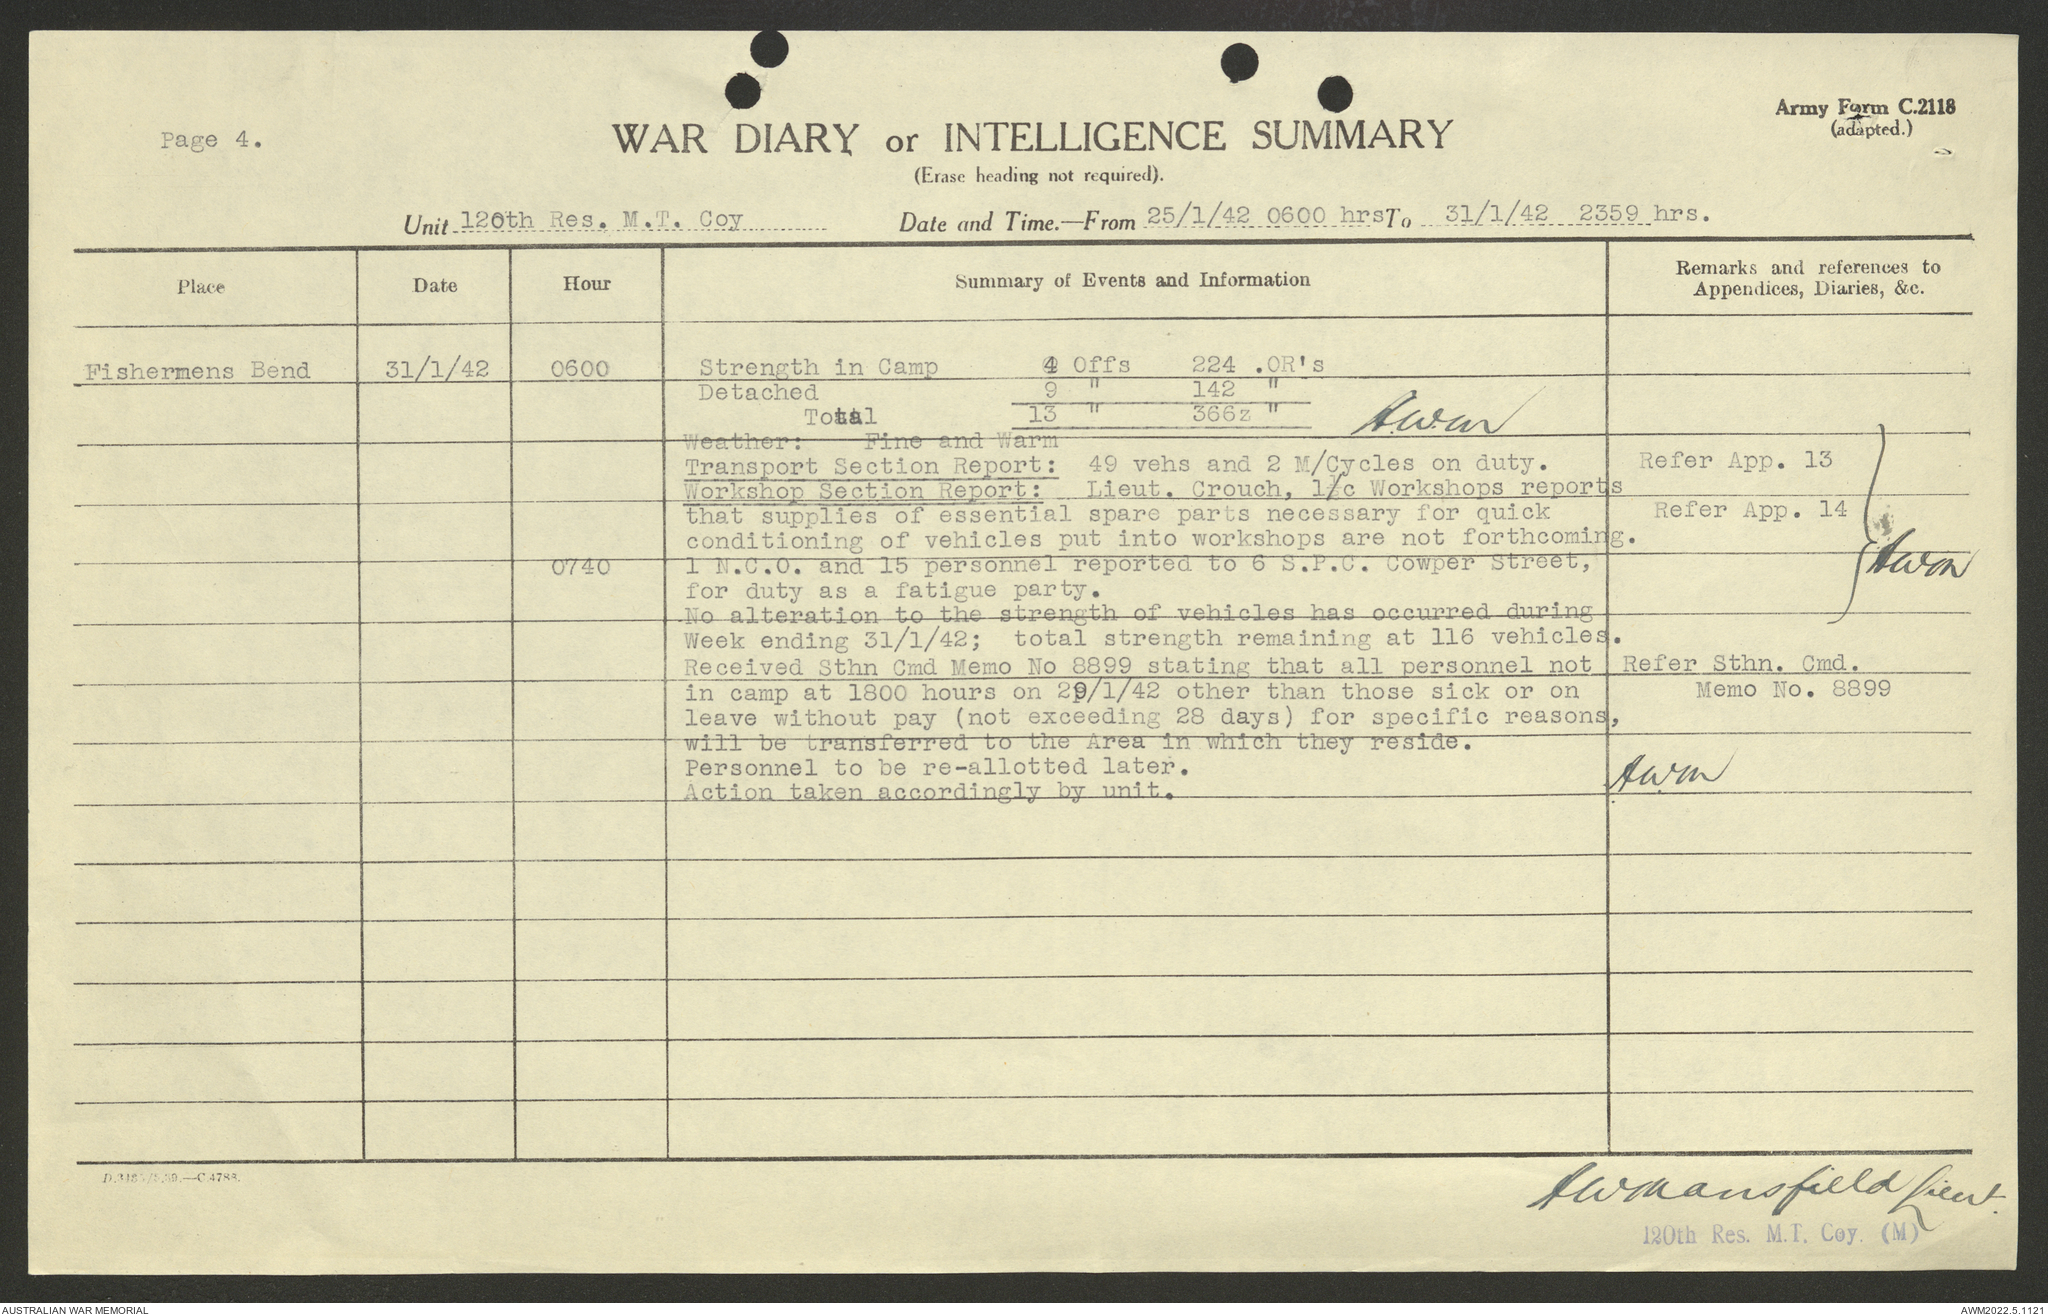 Page 4.
Army Form C.2118
(adapted.)
WAR DIARY or INTELLIGENCE SUMMARY
(Erase heading not required).
Unit 120th Res. M.T. Coy Date and Time.—From 25/1/42 0600 hrs To 31/1/42 2359 hrs.
Place Date Hour Summary of Events and Information Remarks and references to Appendices, Diaries, &c.
Fishermens Bend 31/1/42 0600 Strength in Camp 4 Offs 224 .OR's
Detached 9 " 142 "
Total 13 " 366z "
Weather: Fine and Warm
Transport Section Report: 49 vehs and 2 M/Cycles on duty. Refer App. 13
Workshop Section Report: Lieut. Crouch, i/c Workshops reports
that supplies of essential spare parts necessary for quick Refer App. 14
conditioning of vehicles put into workshops are not forthcoming.
0740 1 N.C.O. and 15 personnel reported to 6 S.P.C. Cowper Street,
for duty as a fatigue party.
No alteration to the strength of vehicles has occurred during
Week ending 31/1/42; total strength remaining at 116 vehicles.
Received Sthn Cmd Memo No 8899 stating that all personnel not Refer Sthn. Cmd.
in camp at 1800 hours on 29/1/42 other than those sick or on Memo No. 8899
leave without pay (not exceeding 28 days) for specific reasons,
will be transferred to the Area in which they reside.
Personnel to be re-allotted later.
Action taken accordingly by unit.
AWMansfield Lieut.
120th Res. M.T. Coy. (M)
AUSTRALIAN WAR MEMORIAL
AWM2022.5.1121